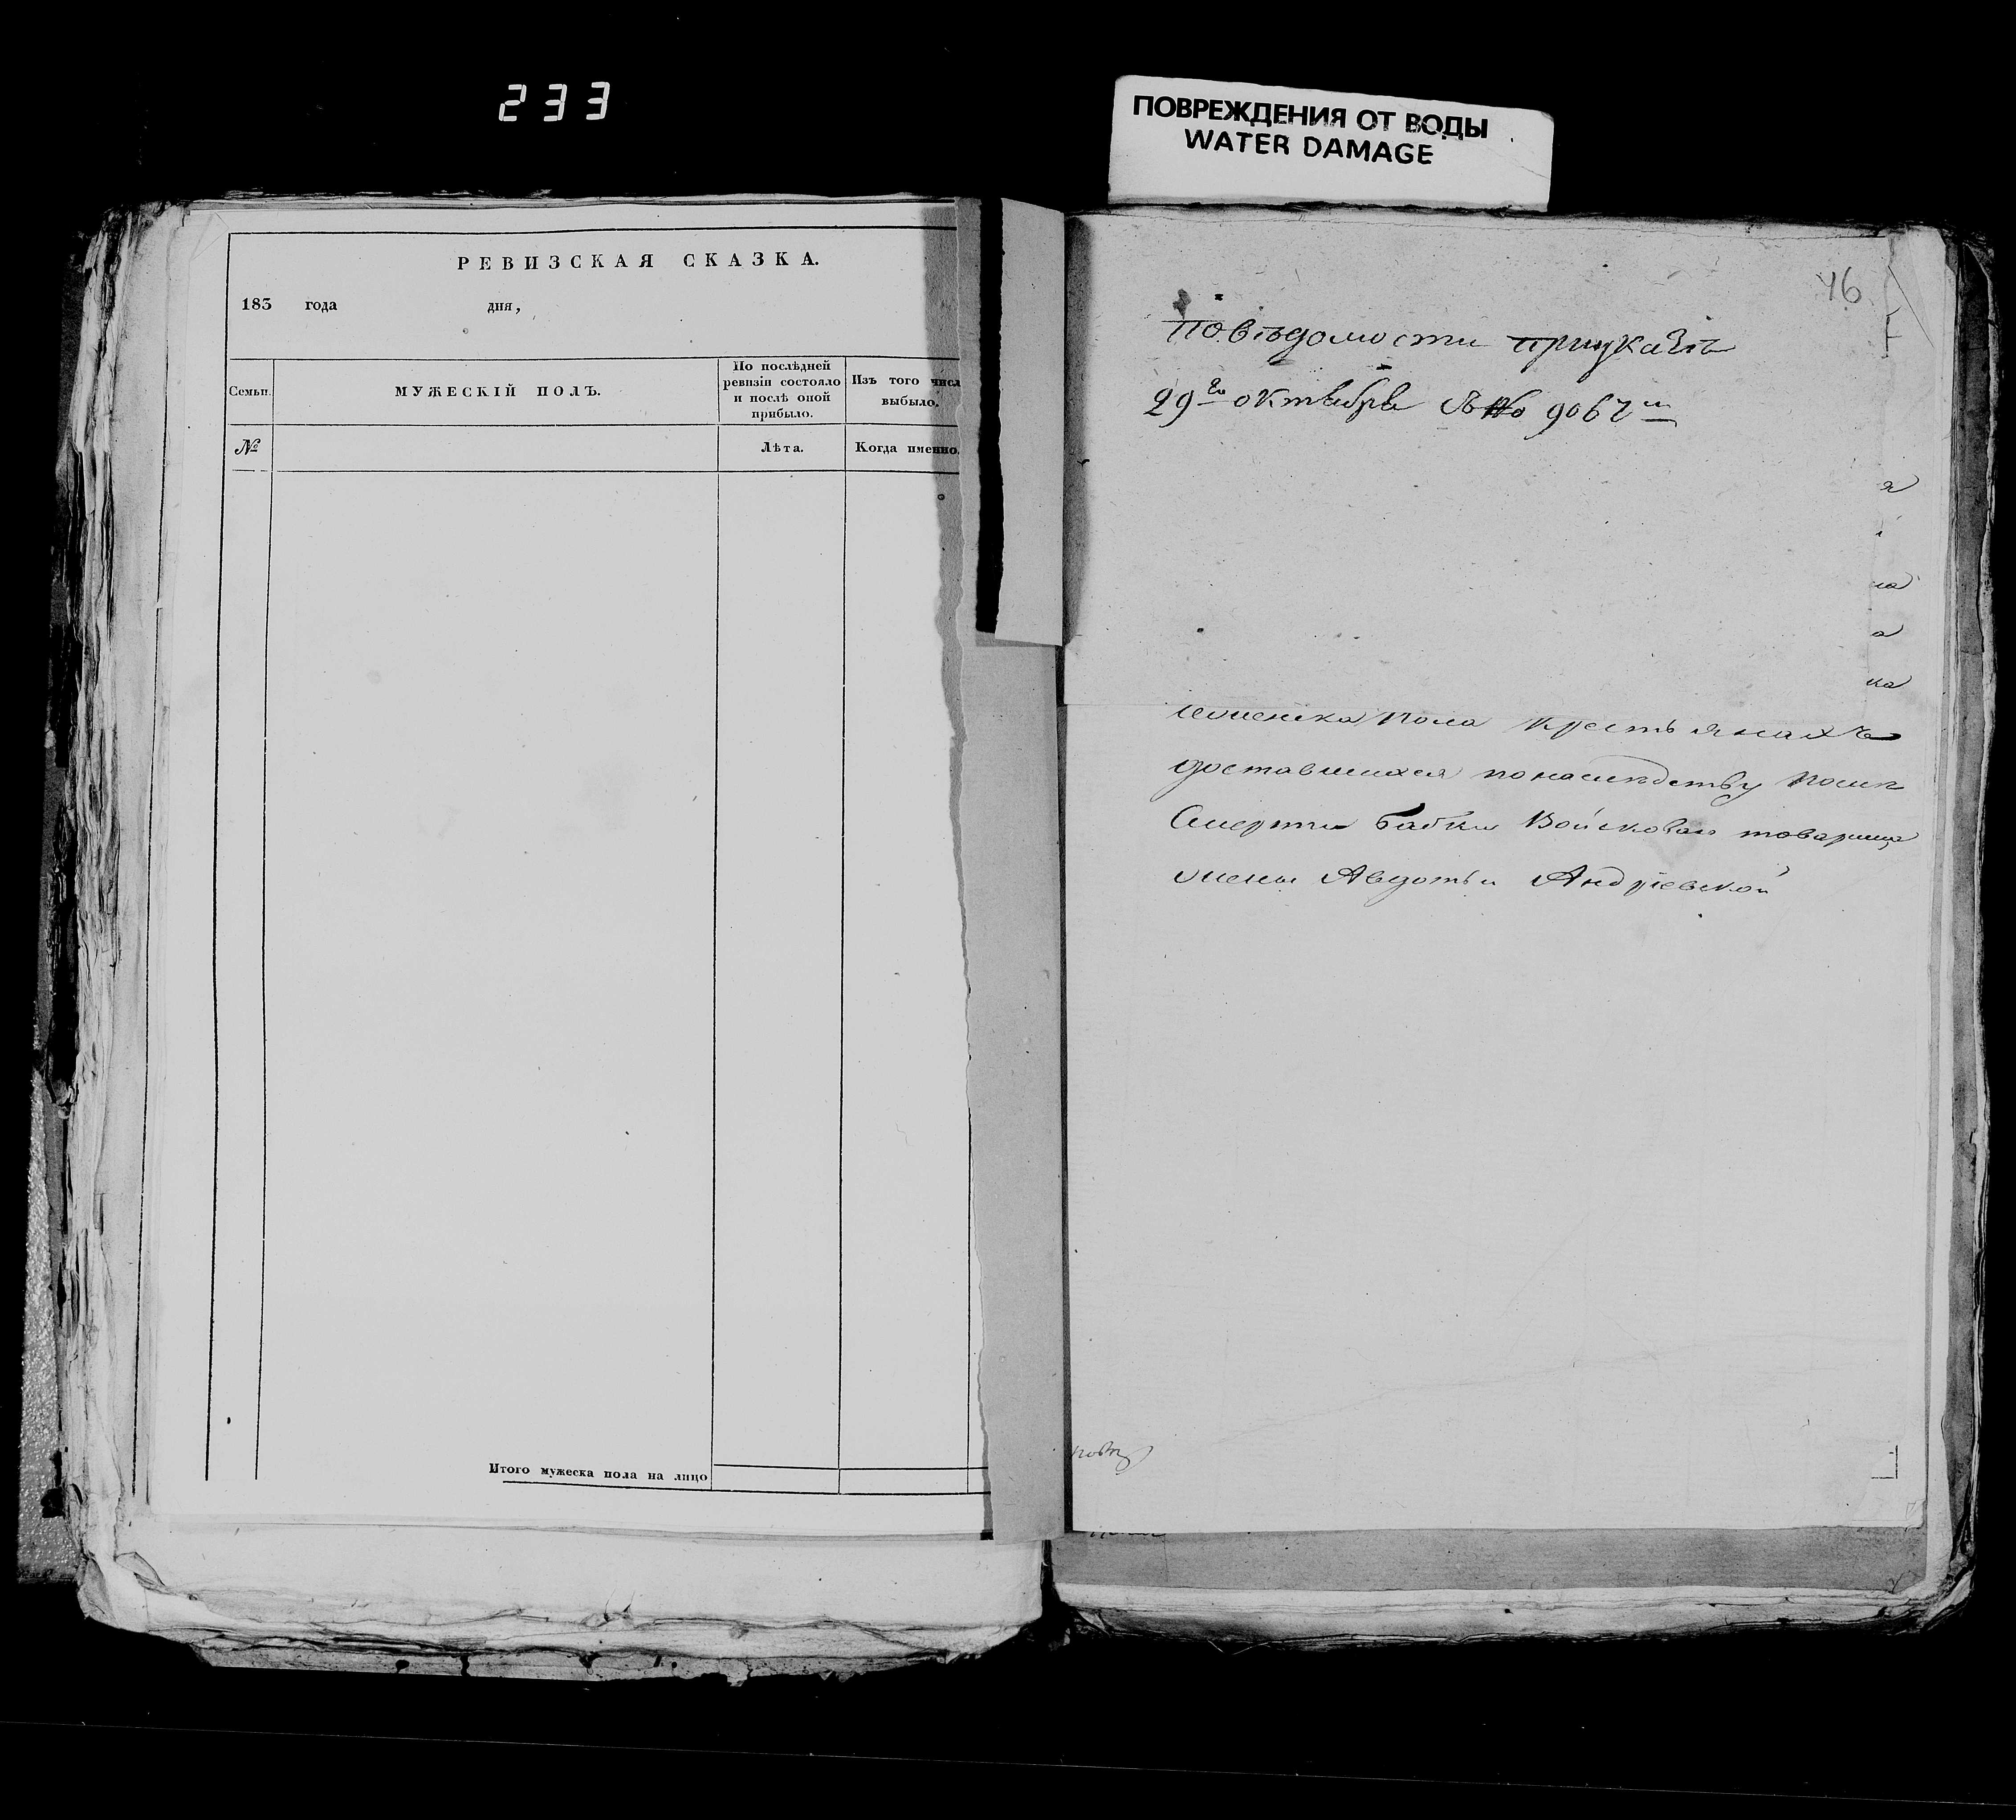 233
ПОВРЕЖДЕНИЯ ОТ ВОДЫ
WATER DAMAGE
РЕВИЗСКАЯ СКАЗКА.
183 года дня,
Семьи.
МУЖЕСКІЙ ПОЛЪ.
По послѣдней
ревизіи состояло
и послѣ оной
прибыло.
Изъ того числ
выбыло.
№
Лѣта.
Когда именно.
Итого мужеска пола на лицо
46
повѣдомости приуказѣ
29го октября № 9067
я
і
ла
а
ка
женска пола крестьянахъ
доставшихся понаследству посли
Смерти бабки Войсковаго товарища
жены Авдотьи Андріевской